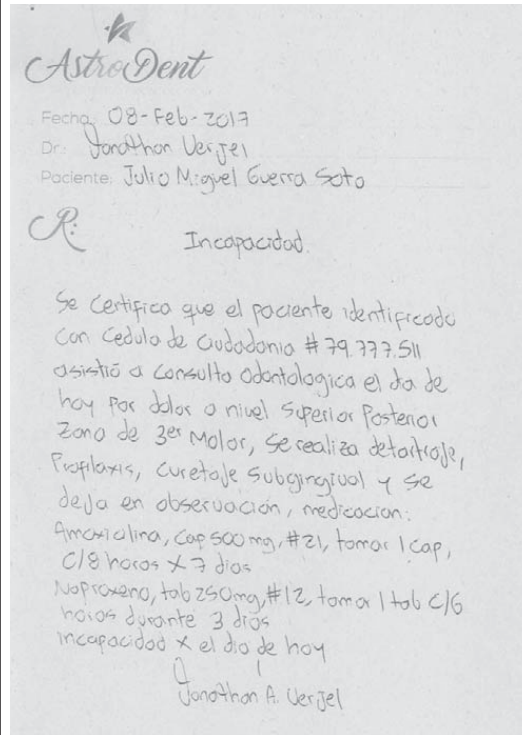 AstroDent
Fecha: 08-Feb-2017
Dr: Jonathan Verjel
Paciente: Julio Miguel Guerra Soto
R:
Incapacidad.
Se certifica que el paciente identificado
con cedula de ciudadania #79.777.511
asistió a consulta odontologica el dia de
hoy por dolor a nivel superior posterior
zona de 3er Molar, se realiza detartraje,
Profilaxis, curetaje subgingival y se
deja en observación, medicacion:
Amoxicilina, cap 500 mg, #21, tomar 1 cap,
C/8 horas x 7 dias
Naproxeno, tab 250mg, #12, tomar 1 tab C/6
horas durante 3 dias
incapacidad x el dia de hoy
Jonathan A. Verjel